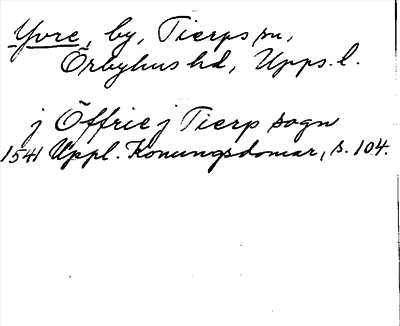 Yvre, by, Tierps sn,
Örbyhus hd, Upps. l.
j Öffrie j Tierp sogn
1541 Uppl. Konungsdomar, s. 104.